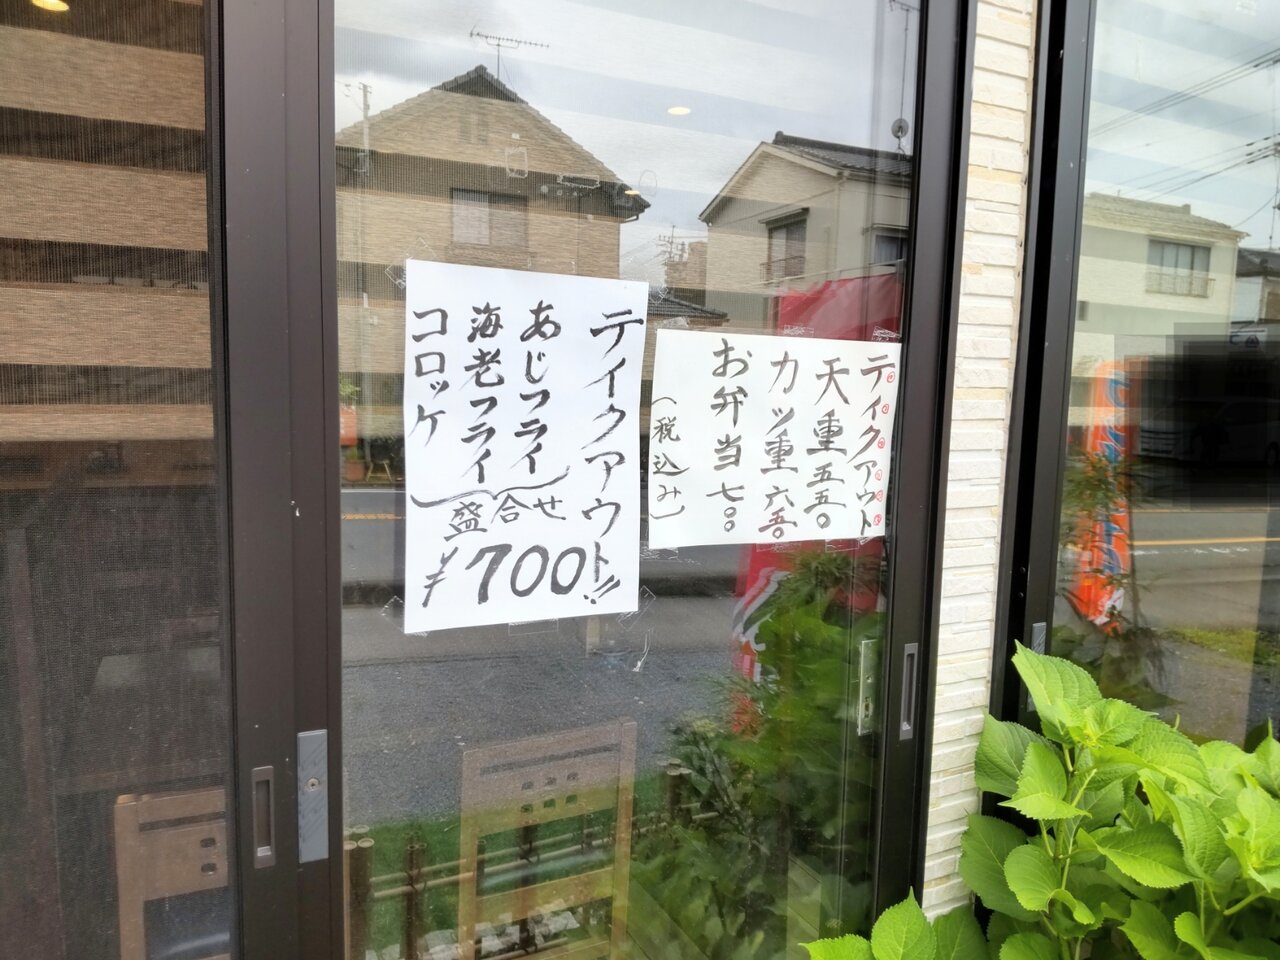 テイクアウト
天重 五五〇
カツ重 六五〇
お弁当 七〇〇
(税込み)
テイクアウト!!
あじフライ
海老フライ
コロッケ
盛合せ
¥700